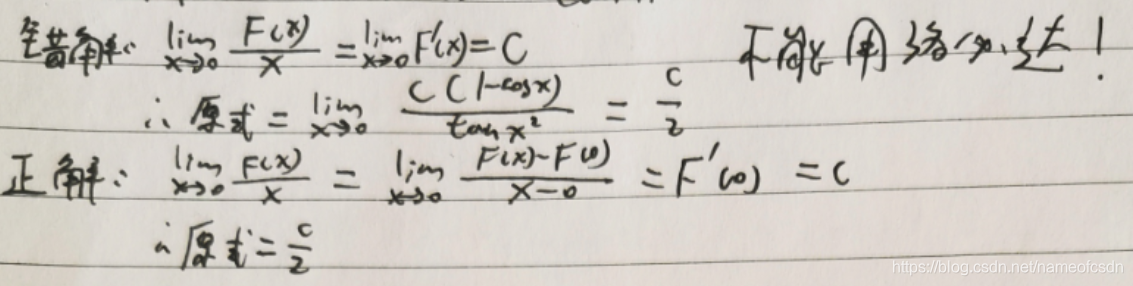 错解: lim x→0 F(x)/x = lim x→0 F'(x) = C 不能用洛必达!
∴ 原式 = lim x→0 C(1-cosx)/tanx² = C/2
正解: lim x→0 F(x)/x = lim x→0 F(x)-F(0)/x-0 = F'(0) = C
∴ 原式 = C/2
https://blog.csdn.net/nameofcsdn